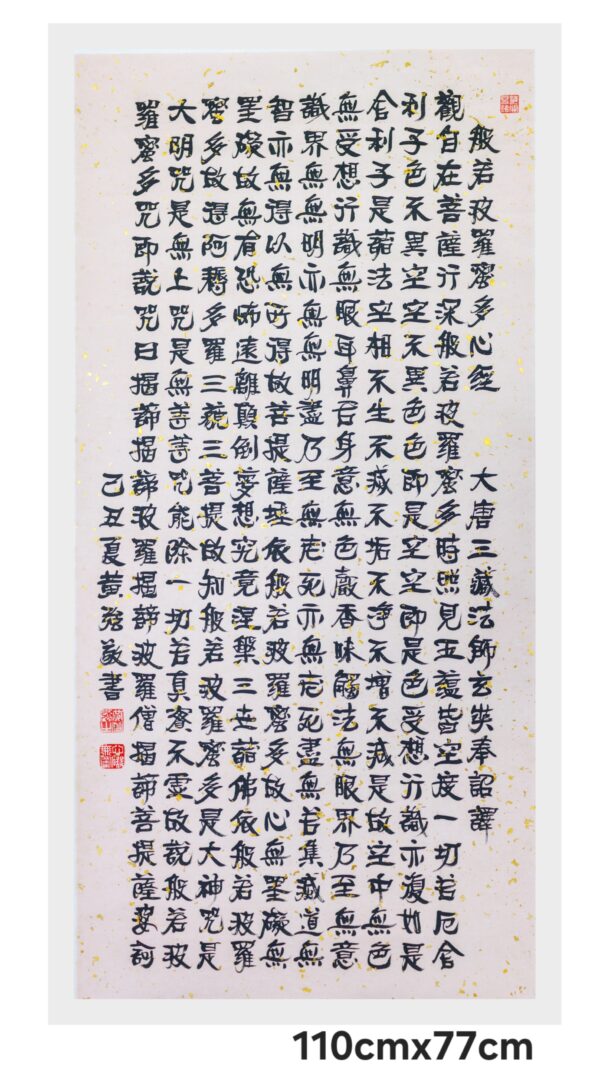 般若波羅蜜多心經 大唐三藏法師玄奘奉詔譯
觀自在菩薩行深般若波羅蜜多時照見五蘊皆空度一切苦厄舍
利子色不異空空不異色色即是空空即是色受想行識亦復如是
舍利子是諸法空相不生不滅不垢不淨不增不減是故空中無色
無受想行識無眼耳鼻舌身意無色聲香味觸法無眼界乃至無意
識界無無明亦無無明盡乃至無老死亦無老死盡無苦集滅道無
智亦無得以無所得故菩提薩埵依般若波羅蜜多故心無罣礙無
罣礙故無有恐怖遠離顛倒夢想究竟涅槃三世諸佛依般若波羅
蜜多故得阿耨多羅三藐三菩提故知般若波羅蜜多是大神咒是
大明咒是無上咒是無等等咒能除一切苦真實不虛故說般若波
羅蜜多咒即說咒曰揭諦揭諦波羅揭諦波羅僧揭諦菩提薩婆訶
己丑夏黃書
110cmx77cm